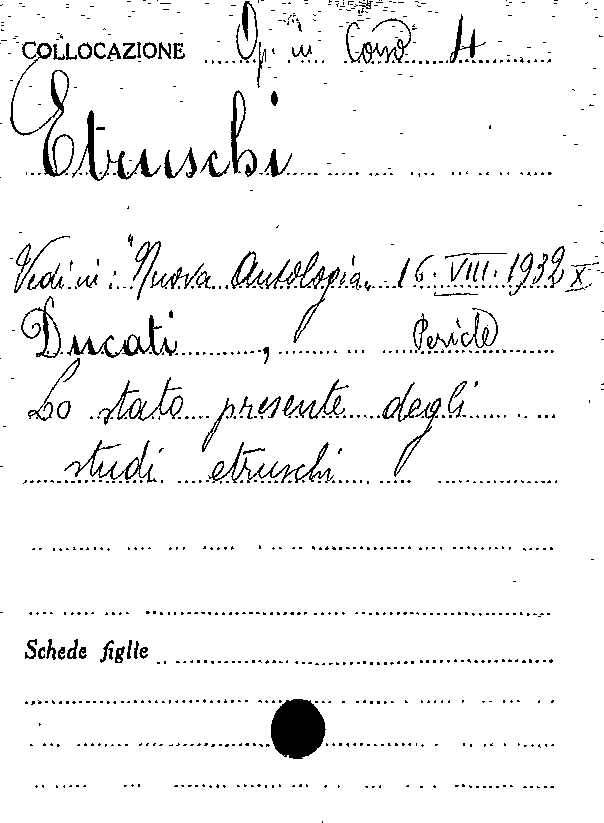 COLLOCAZIONE Op. in Cons 4
Etruschi
Vedi in: "Nuova Antologia" 16. VIII. 1932 X
Ducati, Pericle
Lo stato presente degli
studi etruschi
Schede figlie